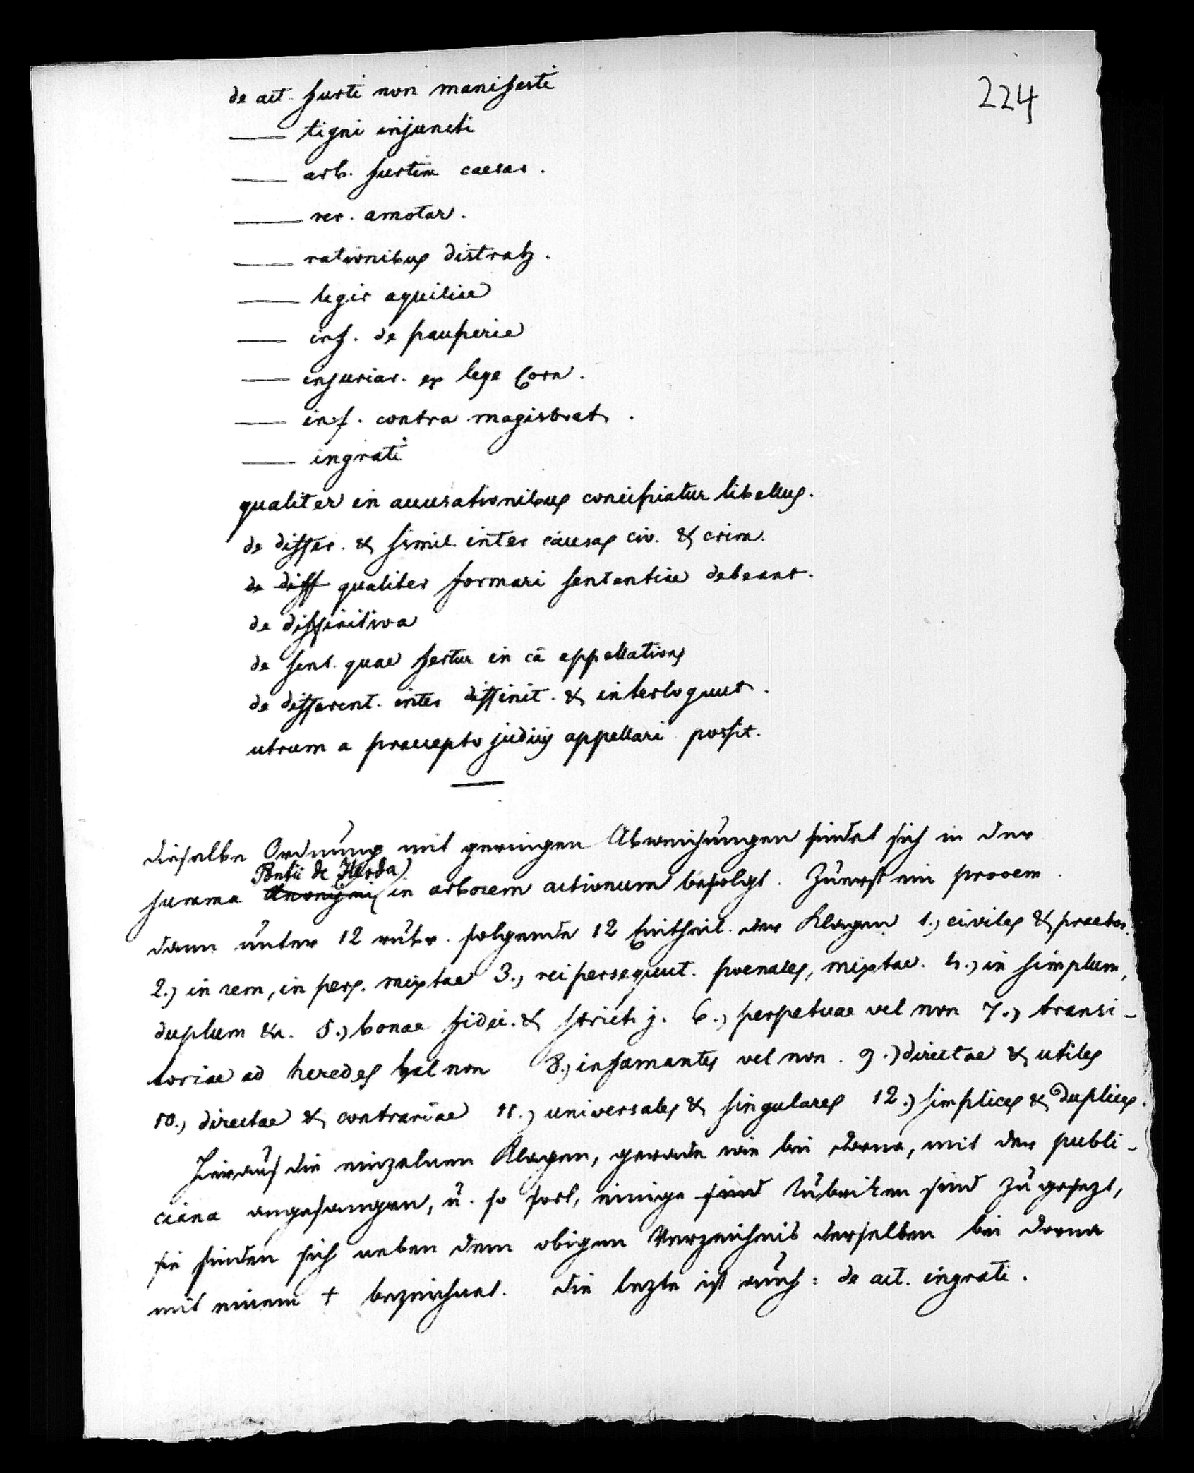 224
de act. furti non manifesti
—— tigni injuncti
—— arb. furtim caesar.
—— rer. amotar.
—— rationibus distrah.
—— legis aquiliae
—— inf. de pauperie
—— injuriar. ex lege Corn.
—— inf. contra magistrat.
—— ingrati
qualiter in accusationibus concipiatur libellus.
de differ. & simil. inter causas civ. & crim.
de diff qualiter formari sententiae debeant.
de diffinitiva
de sent. quae fertur in cā appellationis
de different. inter diffinit. & interloquut.
utrum a praecepto judicis appellari possit.
dieselbe Ordnung mit geringen Abweichungen findet sich in der
Pontii de Ilerda)
summa Anonymi (in arborem actionum befolgt. Zuerst ein prooem.
dann unter 12 rubr. folgende 12 Eintheil. der Klagen 1.) civiles & praetor.
2.) in rem, in pers. mixtae 3.) rei persequut. poenales, mixtae. 4.) in simplum,
duplum &c. 5.) bonae fidei. & strict. j. 6.) perpetuae vel non 7.) transi-
toriae ad heredes vel non 8.) infamantes vel non. 9.) directae & utiles
10.) directae & contrariae 11.) universales & singulares 12.) simplices & duplices.
Hierauf die einzelnen Klagen, gerade wie bei dorna, mit der publi-
ciana angefangen, u. so fort, einige sind Rubriken sind zugesezt,
sie finden sich neben dem obigen Verzeichnis derselben bei dorna
mit einem + bezeichnet. die lezte ist auch: de act. ingrati.